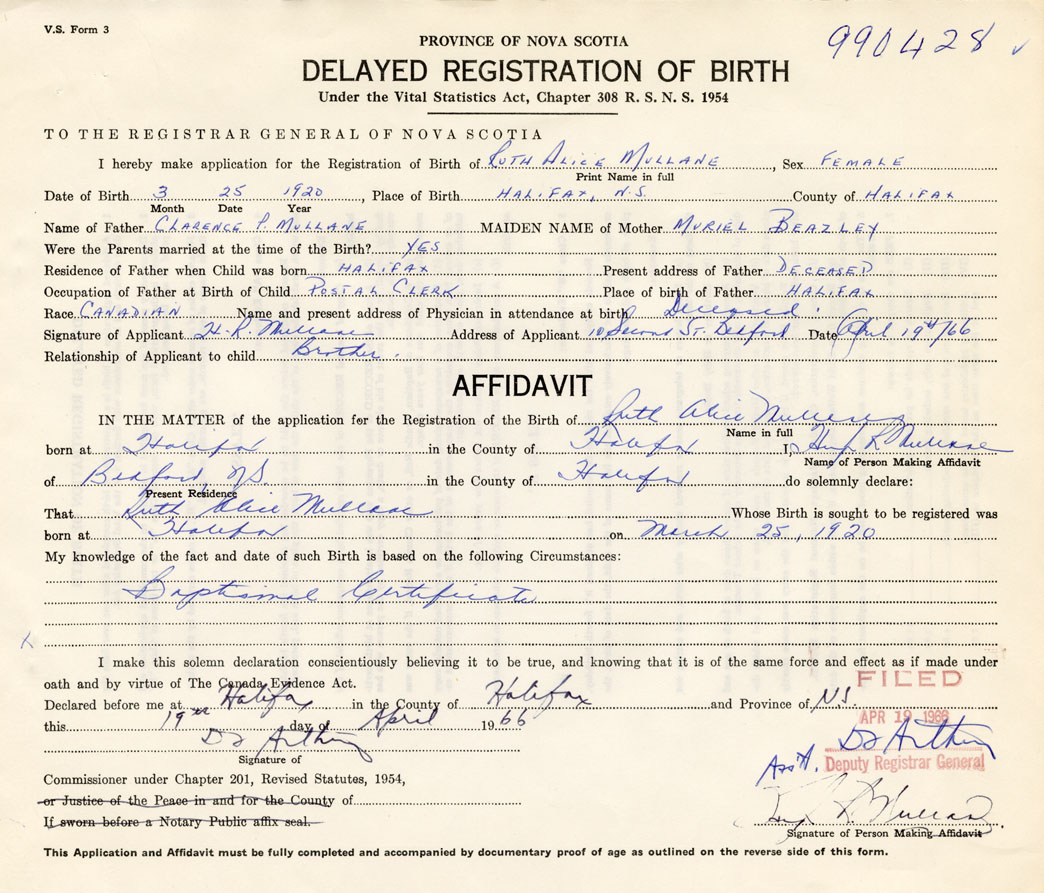 V.S. Form 3
990428
PROVINCE OF NOVA SCOTIA
DELAYED REGISTRATION OF BIRTH
Under the Vital Statistics Act, Chapter 308 R. S. N. S. 1954
TO THE REGISTRAR GENERAL OF NOVA SCOTIA
I hereby make application for the Registration of Birth of RUTH ALICE MULLANE, Sex FEMALE
Print Name in full
Date of Birth 3 25 1920, Place of Birth HALIFAX, N.S. County of HALIFAX
Month Date Year
Name of Father CLARENCE P. MULLANE MAIDEN NAME of Mother MURIEL BEAZLEY
Were the Parents married at the time of the Birth? YES
Residence of Father when Child was born HALIFAX Present address of Father DECEASED
Occupation of Father at Birth of Child POSTAL CLERK Place of birth of Father HALIFAX
Race CANADIAN Name and present address of Physician in attendance at birth Deceased.
Signature of Applicant H. R. Mullane Address of Applicant 10 Second St. Bedford Date April 19th/66
Relationship of Applicant to child Brother.
AFFIDAVIT
IN THE MATTER of the application for the Registration of the Birth of Ruth Alice Mullane
Name in full
born at Halifax in the County of Halifax I, Hugh R Mullane
Name of Person Making Affidavit
of Bedford, N.S. in the County of Halifax do solemnly declare:
Present Residence
That Ruth Alice Mullane Whose Birth is sought to be registered was
born at Halifax on March 25, 1920
My knowledge of the fact and date of such Birth is based on the following Circumstances:
Baptismal Certificate
I make this solemn declaration conscientiously believing it to be true, and knowing that it is of the same force and effect as if made under
oath and by virtue of The Canada Evidence Act.
FILED
Declared before me at Halifax in the County of Halifax and Province of N.S.
this 19th day of April 1966
APR 19 1966
Signature of
Ass't. Deputy Registrar General
Commissioner under Chapter 201, Revised Statutes, 1954,
or Justice of the Peace in and for the County of
If sworn before a Notary Public affix seal.
Hugh R Mullane
Signature of Person Making Affidavit
This Application and Affidavit must be fully completed and accompanied by documentary proof of age as outlined on the reverse side of this form.